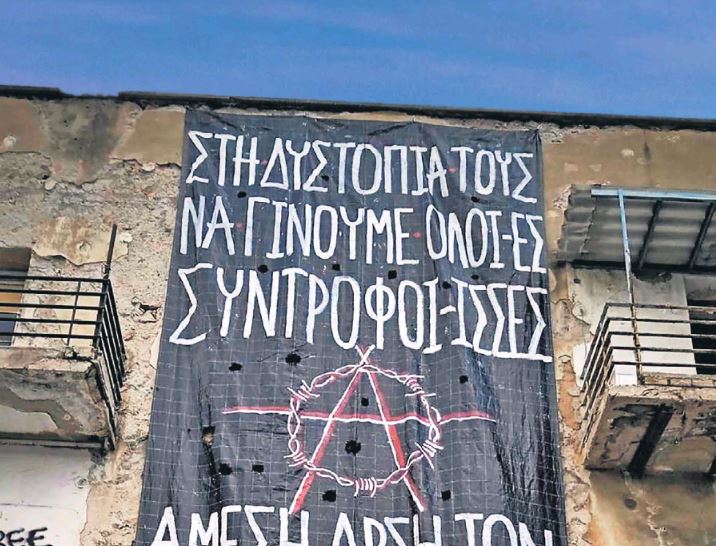 ΣΤΗ ΔΥΣΤΟΠΙΑ ΤΟΥΣ
ΝΑ ΓΙΝΟΥΜΕ ΟΛΟΙ-ΕΣ
ΣΥΝΤΡΟΦΟΙ-ΙΣΣΕΣ
ΑΜΕΣΗ ΑΡΣΗ ΤΩΝ